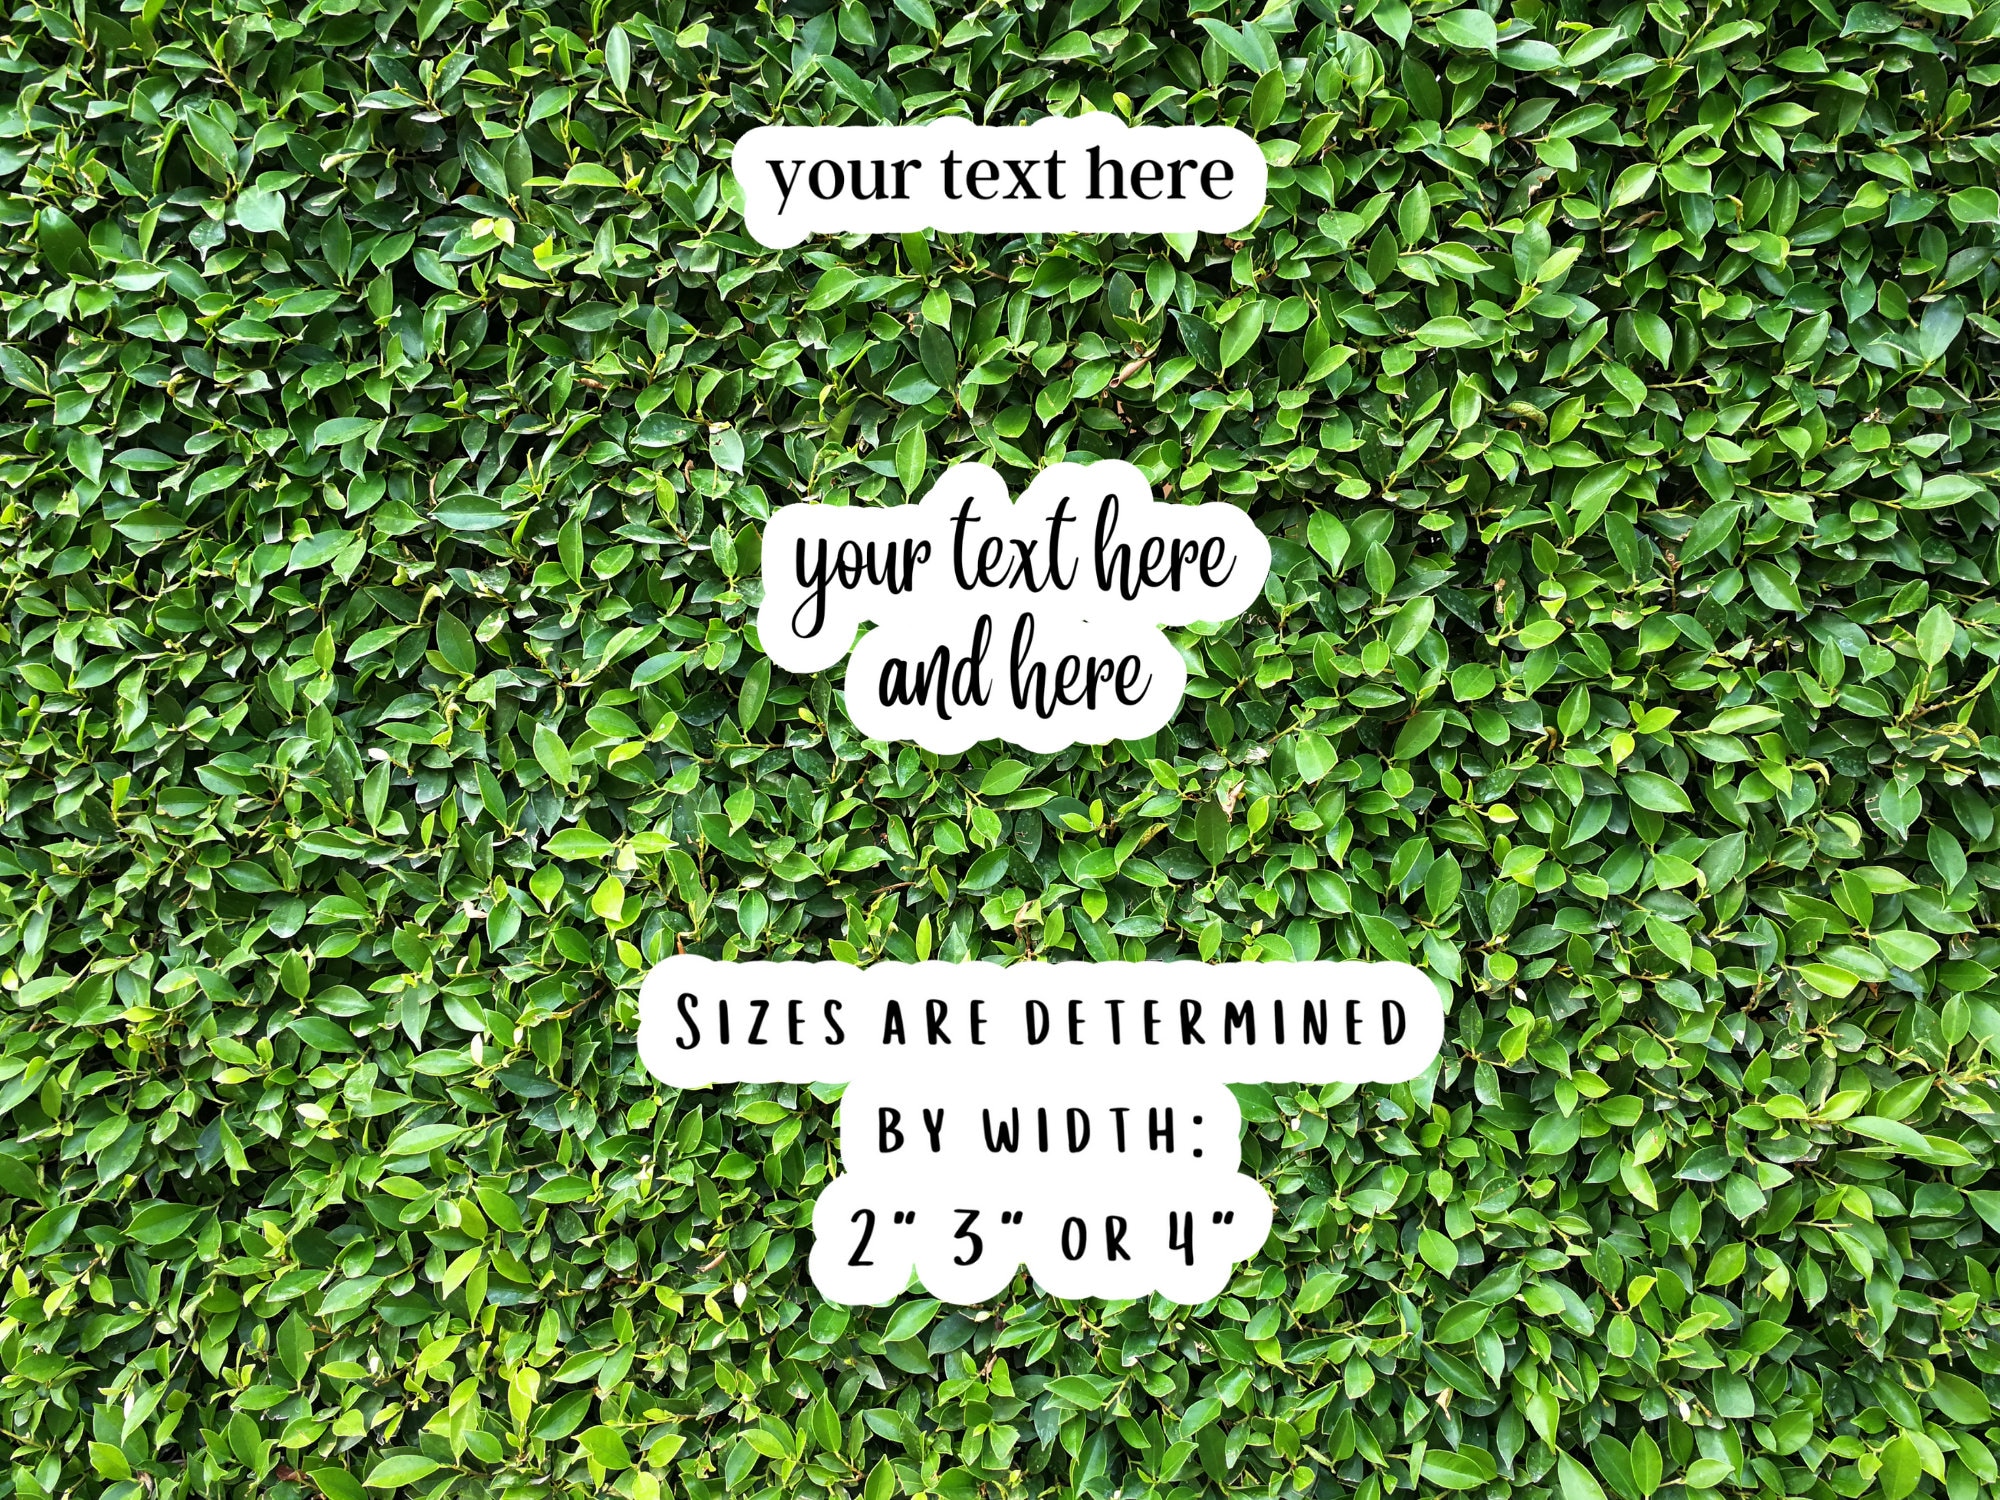 your text here
your text here
and here
SIZES ARE DETERMINED
BY WIDTH:
2" 3" OR 4"